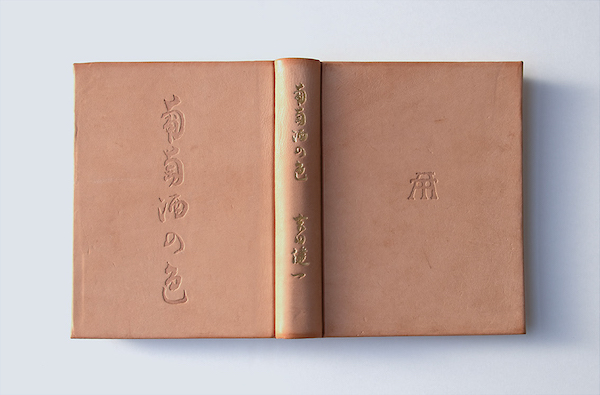 葡萄酒の色
葡萄酒の色
吉田健一